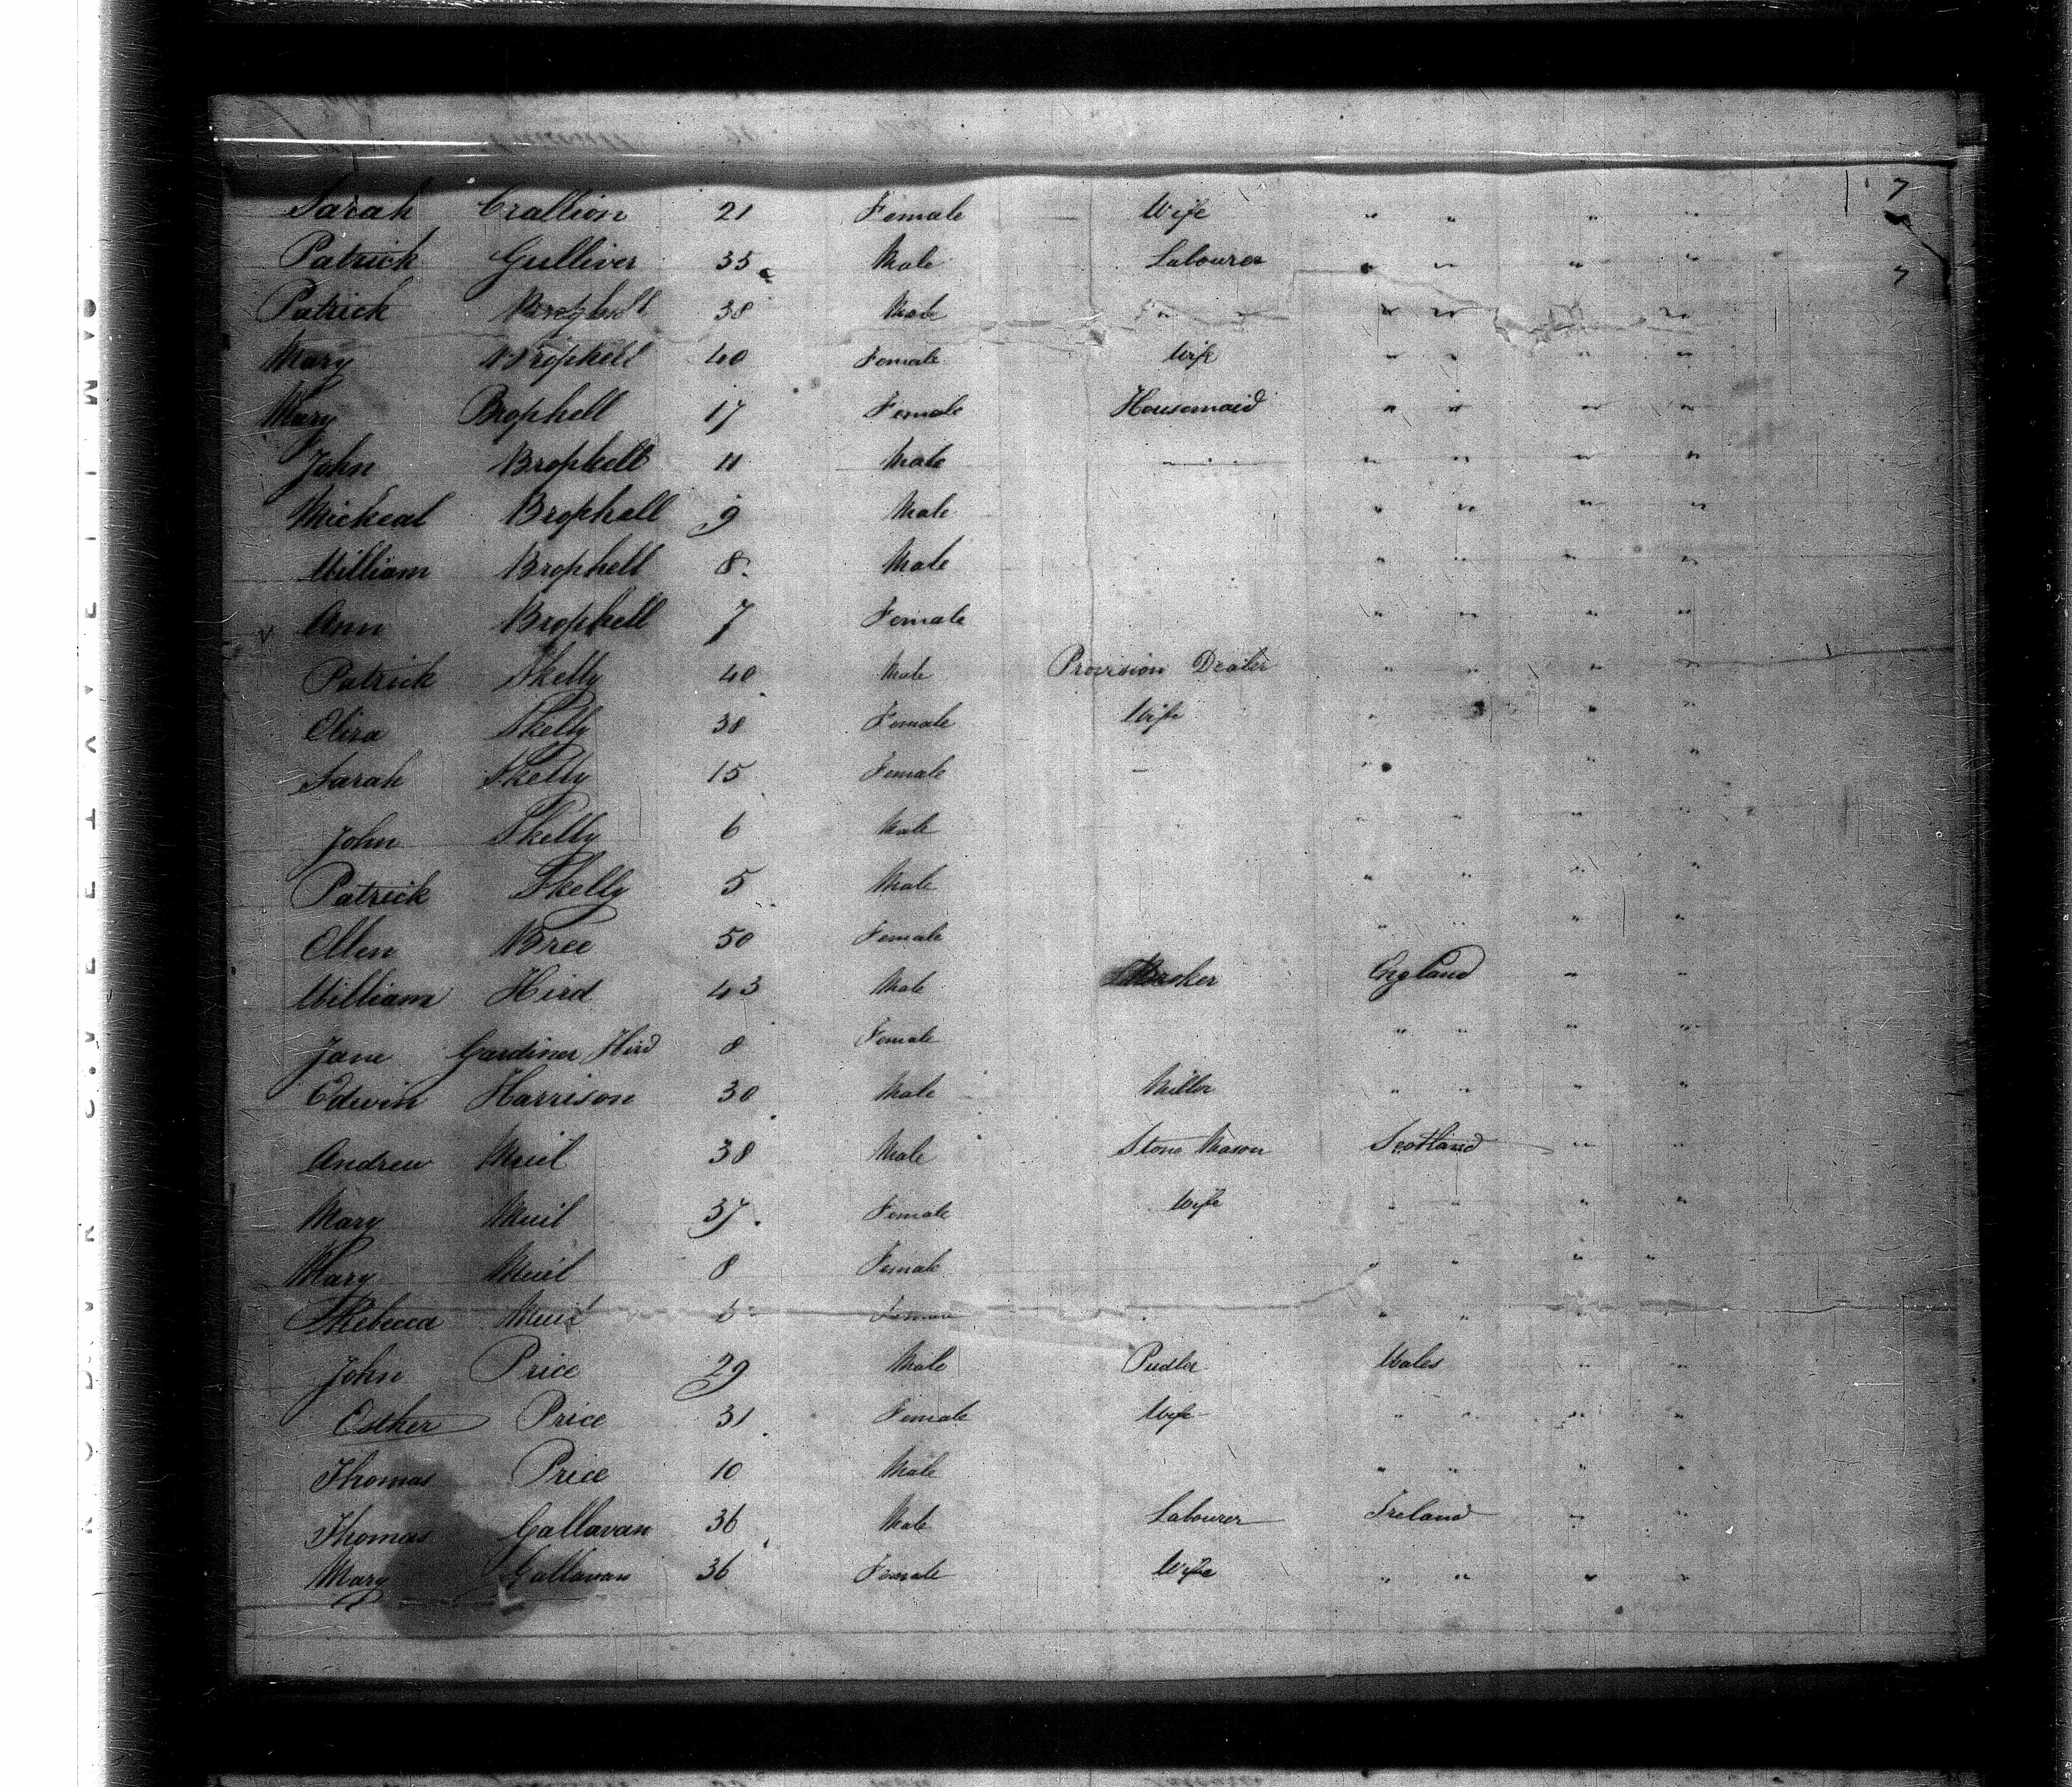 7
Sarah Crallion 21 Female Wife " " " "
Patrick Gulliver 35 Male Labourer " " " " 7
Patrick Brophell 38 Male " " " " " "
Mary Brophell 40 Female Wife " " " "
Mary Brophell 17 Female Housemaid " " " "
John Brophell 11 Male " " " "
Mickeal Brophell 9 Male " " " "
William Brophell 8 Male " " " "
Ann Brophell 7 Female " " " "
Patrick Skelly 40 Male Provision Dealer " " " "
Eliza Skelly 38 Female Wife " " " "
Sarah Skelly 15 Female — " " "
John Skelly 6 Male " " " "
Patrick Skelly 5 Male " " " "
Ellen Bree 50 Female " " " "
William Hird 43 Male England " "
Jane Gardiner Hird 8 Female " " " "
Edwin Harrison 30 Male Miller " " " "
Andrew Muil 38 Male Stone Mason Scotland " "
Mary Muil 37 Female Wife " " " "
Mary Muil 8 Female " " " "
Rebecca Muil 6 Female " " " "
John Price 29 Male Pudler Wales " "
Esther Price 31 Female Wife " " " "
Thomas Price 10 Male " " " "
Thomas Gallavan 36 Male Labourer Ireland " "
Mary Gallavan 36 Female Wife " " " "